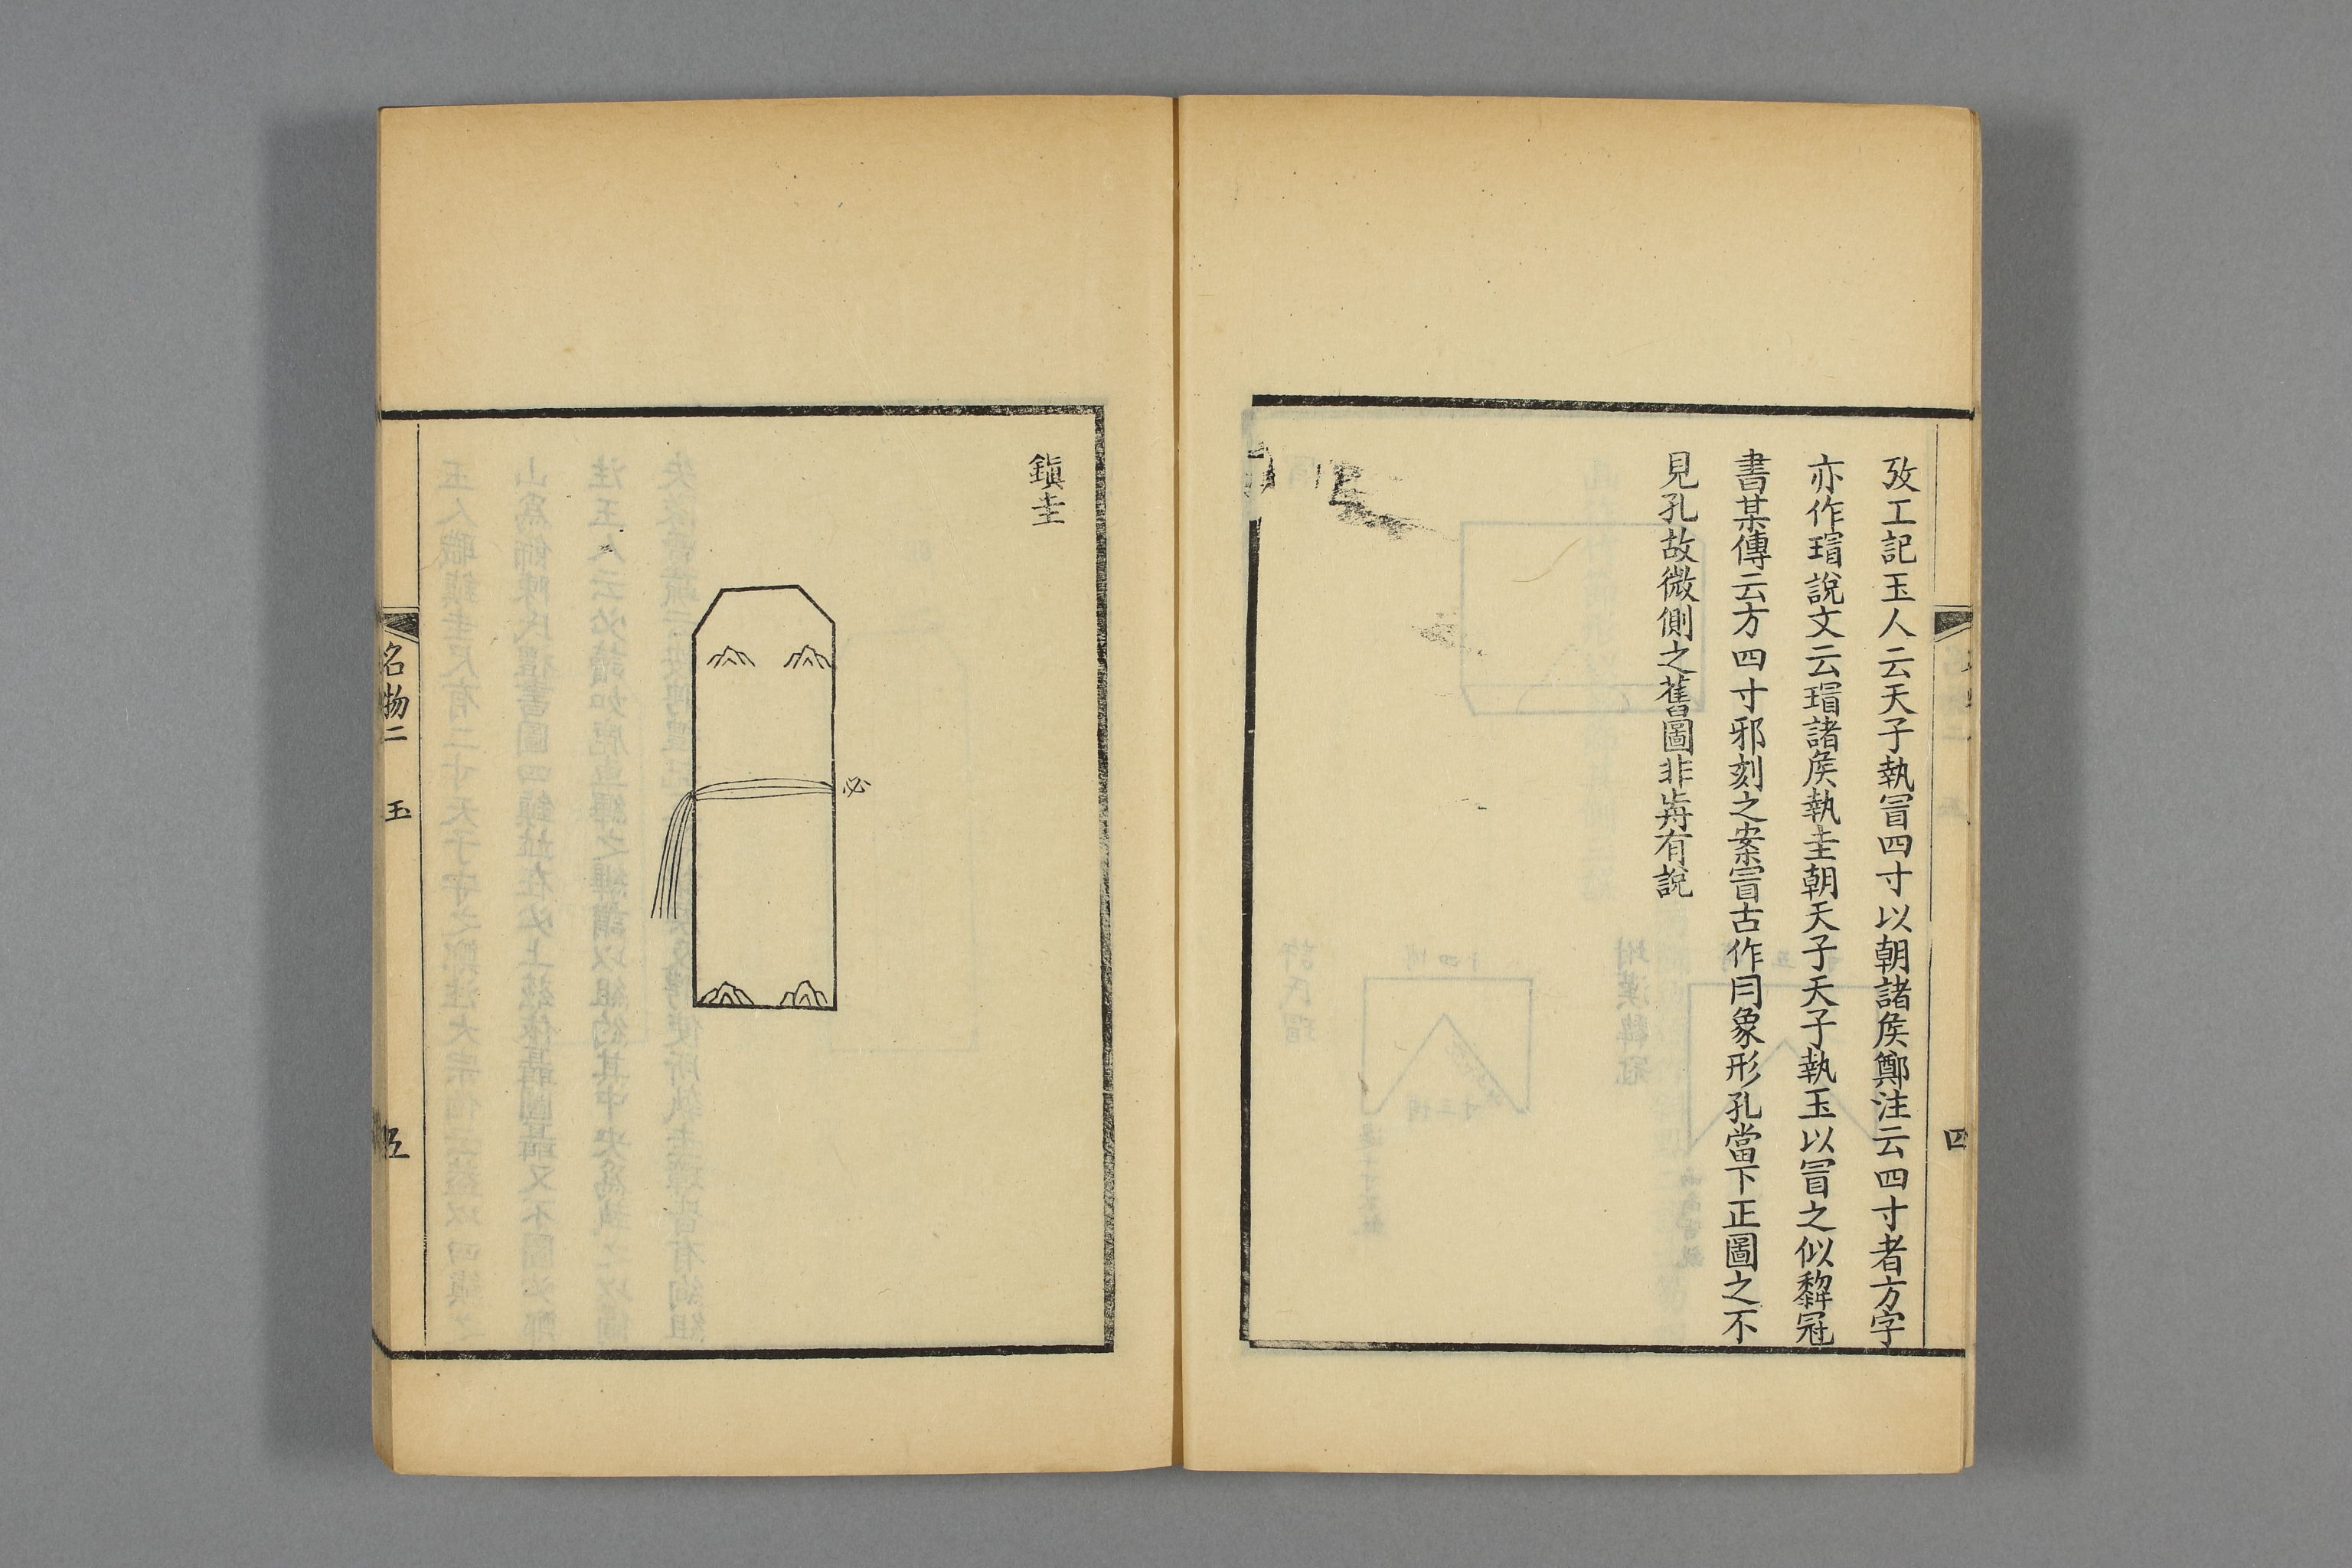 攷工記玉人云天子執冒四寸以朝諸矦鄭注云四寸者方字
亦作瑁說文云瑁諸矦執圭朝天子天子執玉以冒之似犂冠
書某傳云方四寸邪刻之案冒古作冃象形孔當下正圖之不
見孔故微側之舊圖非歬有說
四
鎭圭
必
名物二
玉
五